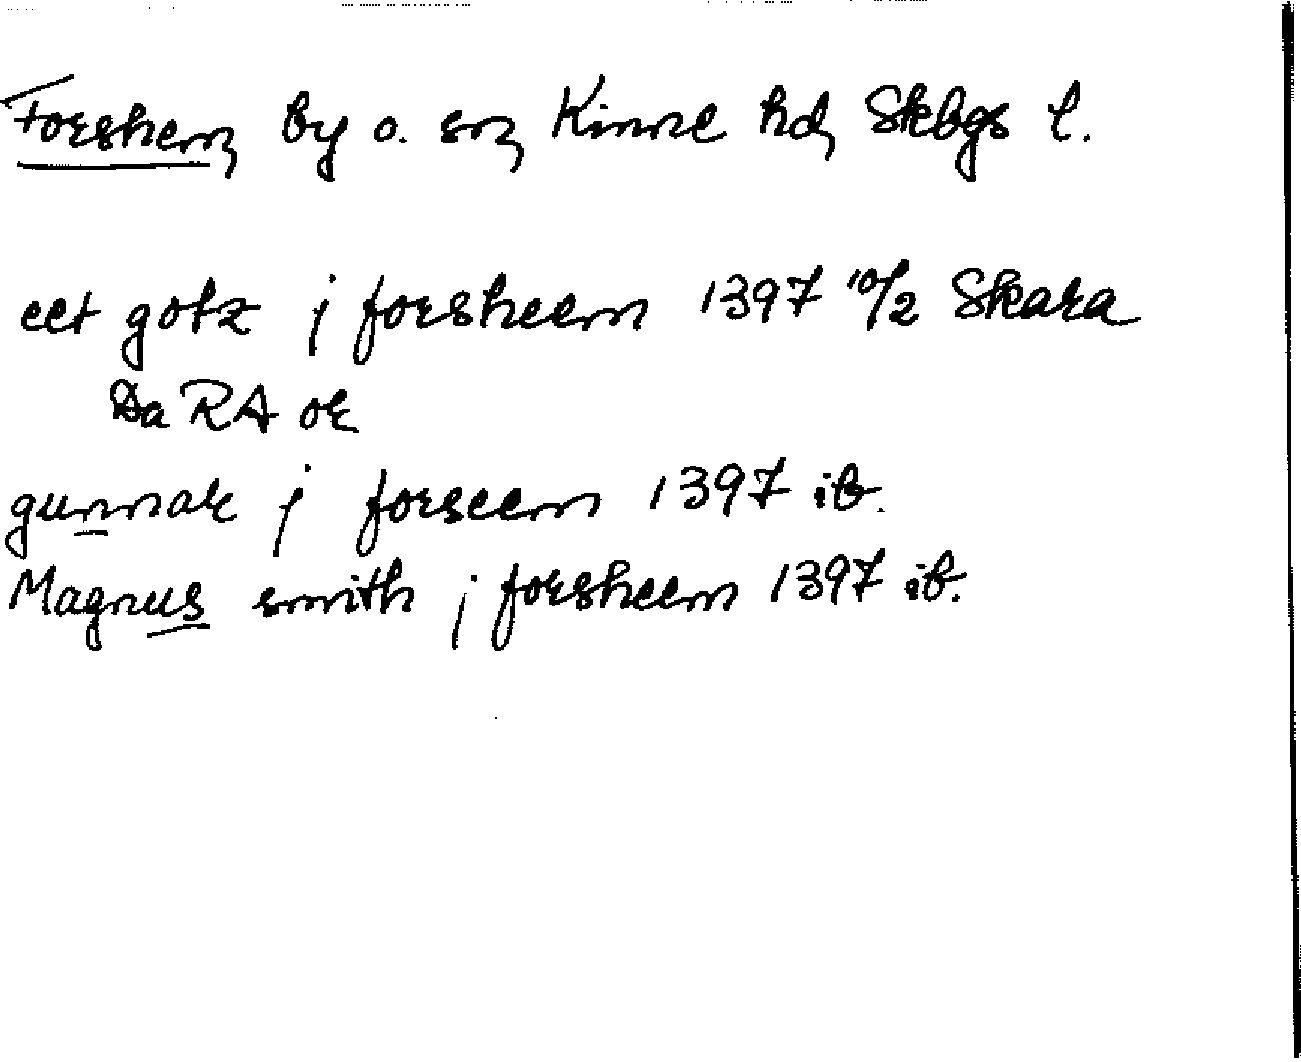 Forshem, by o. sn, Kinne hd, Skbgs l.
eet gotz j forsheem 1397 10/2 Skara
Da RA or
gunnar j forseem 1397 ib.
Magnus smith j forsheem 1397 ib.